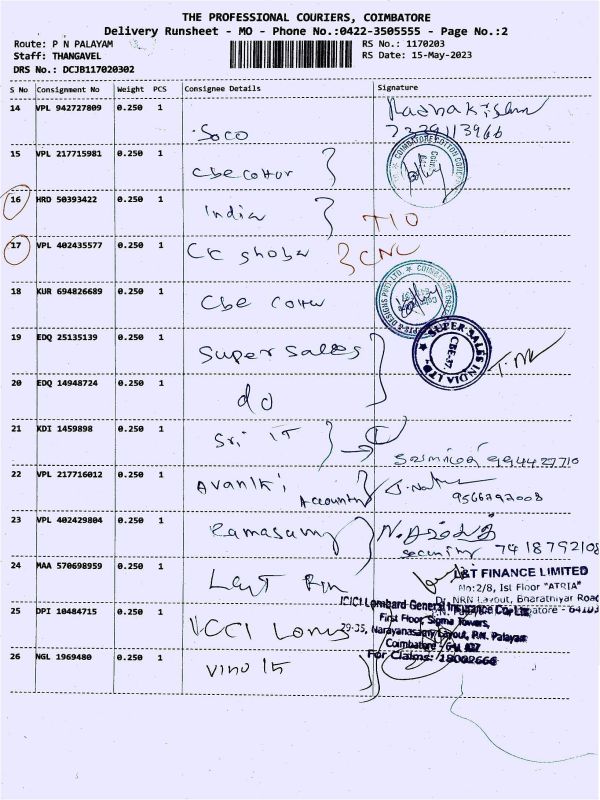 THE PROFESSIONAL COURIERS, COIMBATORE
Delivery Runsheet - MO - Phone No.:0422-3505555 - Page No.:2
Route: P N PALAYAM
RS No.: 1170203
Staff: THANGAVEL
RS Date: 15-May-2023
DRS No.: DCJB117020302
S No Consignment No Weight PCS Consignee Details Signature
14 VPL 942727809 0.250 1 Soco Radhakrishnan
COIMBATORE COTTON
15 VPL 217715981 0.250 1 Cbe cottor
16 HRD 50393422 0.250 1 India TIO
17 VPL 402435577 0.250 1 CK shoba CNL
COIMBATORE
18 KUR 694826689 0.250 1 Cbe cotter
SUPER SALES INDIA LTD.
CBE-37.
19 EDQ 25135139 0.250 1 Super Sales
20 EDQ 14948724 0.250 1 do
21 KDI 1459898 0.250 1 Sri IT
9944427710
22 VPL 217716012 0.250 1 Avanlki Accounts
9566797008
23 VPL 402429804 0.250 1 Ramasamy
security 7418792108
24 MAA 570698959 0.250 1 L&T Fin
L&T FINANCE LIMITED
No:2/8, Ist Floor "ATRIA"
Dr. NRN Layout, Bharathiyar Road
25 DPI 10484715 0.250 1 ICCI Lom
ICICI Lombard General Insurance Co. Ltd.
First Floor, Sigma Towers,
29-35, Narayanasamy Layout, P.N. Palayam
Coimbatore - 641 037
For Claims: 18002666
26 NGL 1969480 0.250 1 Vino It